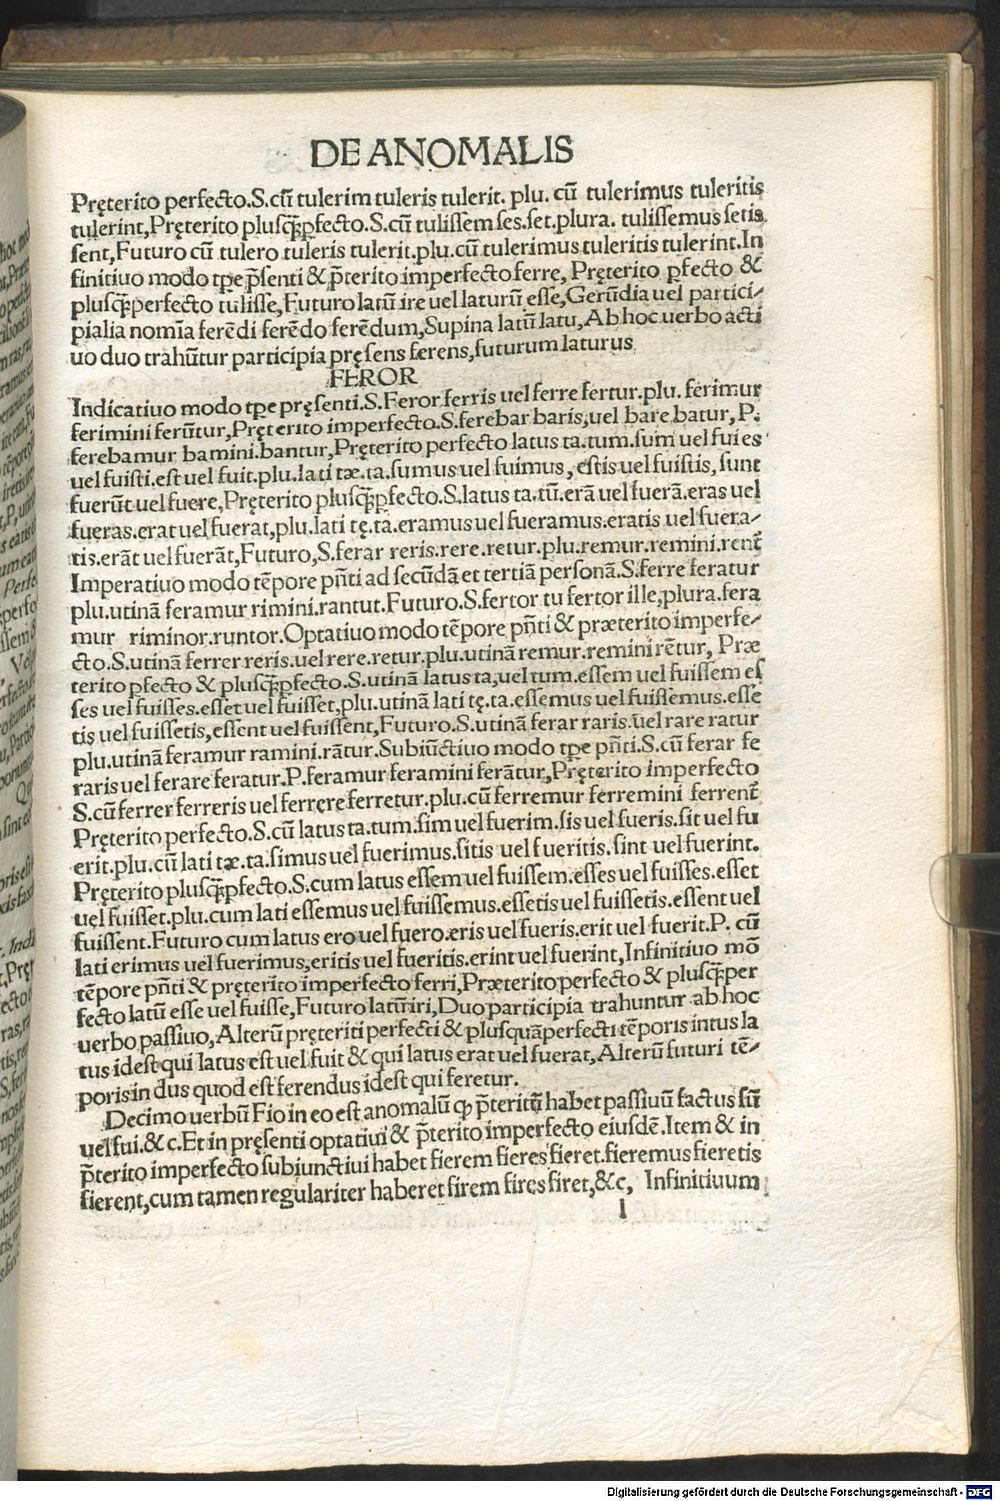 DE ANOMALIS
Pręterito perfecto.S.cū tulerim tuleris tulerit. plu. cū tulerimus tuleritis
tulerint,Pręterito plusq̄ꝑfecto.S.cū tulissem ses.set.plura. tulissemus setis
sent,Futuro cū tulero tuleris tulerit.plu.cū tulerimus tuleritis tulerint.In
finitiuo modo tꝑe p̄senti & p̄terito imperfecto ferre, Pręterito ꝑfecto &
plusq̄ꝑerfecto tulisse,Futuro latū ire uel laturū esse,Gerūdia uel partici⸗
pialia nomīa ferēdi ferēdo ferēdum,Supina latū latu,Ab hoc uerbo acti
uo duo trahūtur participia pręsens ferens,futurum laturus
FEROR
Indicatiuo modo tꝑe pręsenti.S.Feror ferris uel ferre fertur.plu. ferimur
ferimini ferūtur,Pręterito imperfecto.S.ferebar baris,uel bare batur, P.
ferebamur bamini.bantur,Pręterito perfecto latus ta.tum.sum uel fui es
uel fuisti.est uel fuit.plu.lati tæ.ta.sumus uel fuimus, estis uel fuistis, sunt
fuerūt uel fuere,Pręterito plusq̄ꝑfecto.S.latus ta.tū.erā uel fuerā.eras uel
fueras.erat uel fuerat,plu.lati tę.ta.eramus uel fueramus.eratis uel fuera⸗
tis.erāt uel fuerāt,Futuro,S.ferar reris.rere.retur.plu.remur.remini.rent̄
Imperatiuo modo tēpore pn̄ti ad secūdā et tertiā personā.S.ferre feratur
plu.utinā feramur rimini.rantut.Futuro.S.fertor tu fertor ille,plura.fera
mur riminor.runtor.Optatiuo modo tēpore pn̄ti & præterito imperfe⸗
cto.S.utinā ferrer reris.uel rere.retur.plu.utinā remur.remini rētur, Præ
terito ꝑfecto & plusq̄ꝑfecto.S.utinā latus ta,uel tum.essem uel fuissem es
ses uel fuisses.esset uel fuisset,plu.utinā lati tę.ta.essemus uel fuissemus.esse
tis uel fuissetis,essent uel fuissent,Futuro.S.utinā ferar raris.uel rare ratur
plu.utinā feramur ramini.rātur.Subiūctiuo modo tꝑe pn̄ti.S.cū ferar fe
raris uel ferare feratur.P.feramur feramini ferātur,Pręterito imperfecto
S.cū ferrer ferreris uel ferrere ferretur.plu.cū ferremur ferremini ferrent̄
Pręterito perfecto.S.cū latus ta.tum.sim uel fuerim.sis uel fueris.sit uel fu
erit.plu.cū lati tæ.ta.simus uel fuerimus.sitis uel fueritis.sint uel fuerint.
Pręterito plusq̄ꝑfecto.S.cum latus essem uel fuissem.esses uel fuisses.esset
uel fuisset.plu.cum lati essemus uel fuissemus.essetis uel fuissetis.essent uel
fuissent.Futuro cum latus ero uel fuero.eris uel fueris.erit uel fuerit.P. cū
lati erimus uel fuerimus,eritis uel fueritis.erint uel fuerint,Infinitiuo mō
tēpore pn̄ti & pręterito imperfecto ferri,Præterito perfecto & plusq̄per
fecto latū esse uel fuisse,Futuro latū iri,Duo participia trahuntur ab hoc
uerbo passiuo,Alterū pręteriti perfecti & plusquāperfecti tēporis intus la
tus idest qui latus est uel fuit & qui latus erat uel fuerat,Alterū futuri tē⸗
poris in dus quod est ferendus idest qui feretur.
Decimo uerbū Fio in eo est anomalū ꝙ p̄teritū habet passiuū factus sū
uel fui.&c.Et in pręsenti optatiui & p̄terito imperfecto eiusdē.Item & in
p̄terito imperfecto subiunctiui habet fierem fieres fieret.fieremus fieretis
fierent,cum tamen regulariter haberet firem fires firet,&c, Infinitiuum
l
Digitalisierung gefördert durch die Deutsche Forschungsgemeinschaft - DFG